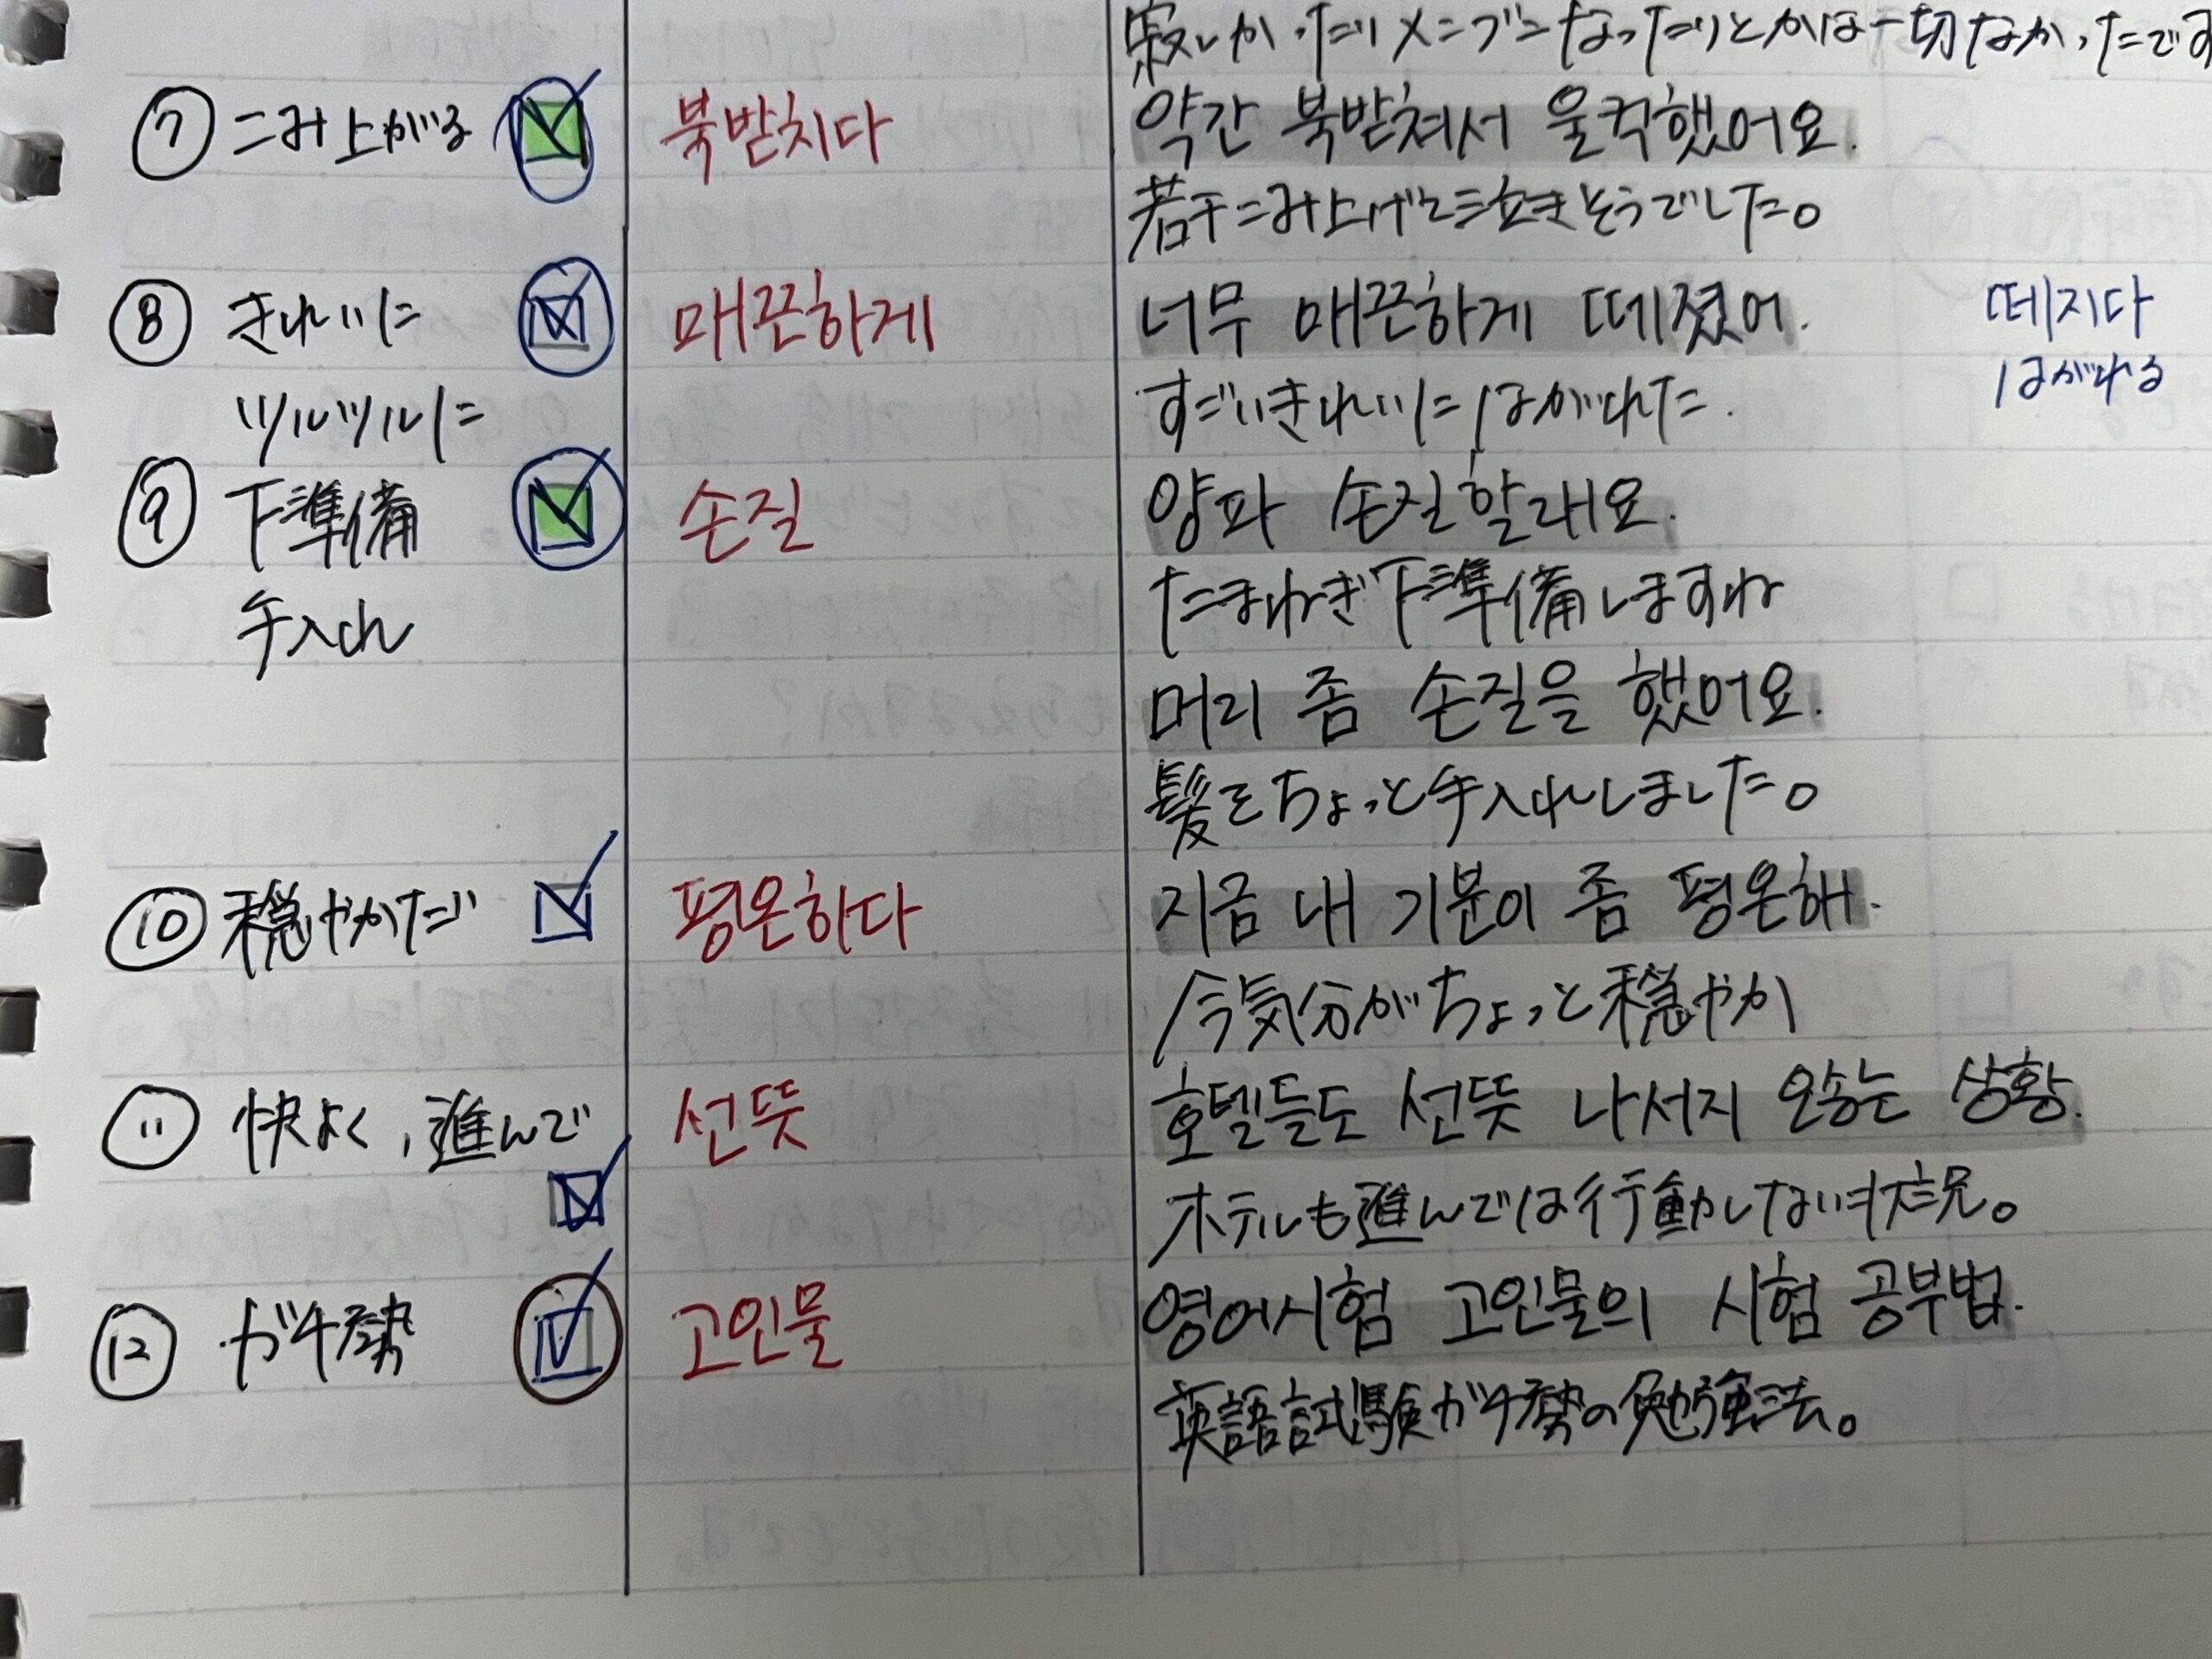 寂しかったりメニブになったりとかは一切なかったです
⑦ こみ上がる 북받치다 약간 북받쳐서 울컥했어요.
若干こみ上げて泣きそうでした。
⑧ きれいに 매끈하게 너무 매끈하게 떼졌어. 떼지다
ツルツルに すごいきれいにはがれた. はがれる
⑨ 下準備 손질 양파 손질할래요.
手入れ たまねぎ下準備しますね
머리 좀 손질을 했어요.
髪をちょっと手入れしました。
⑩ 穏やかだ 평온하다 지금 내 기분이 좀 평온해.
今気分がちょっと穏やか
⑪ 快よく,進んで 선뜻 호텔들도 선뜻 나서지 않는 상황.
ホテルも進んでは行動しない状況。
⑫ ガチ勢 고인물 영어시험 고인물의 시험 공부법.
英語試験ガチ勢の勉強法。